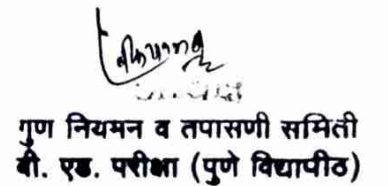 गुण नियमन व तपासणी समिती
बी. एड. परीक्षा (पुणे विद्यापीठ)